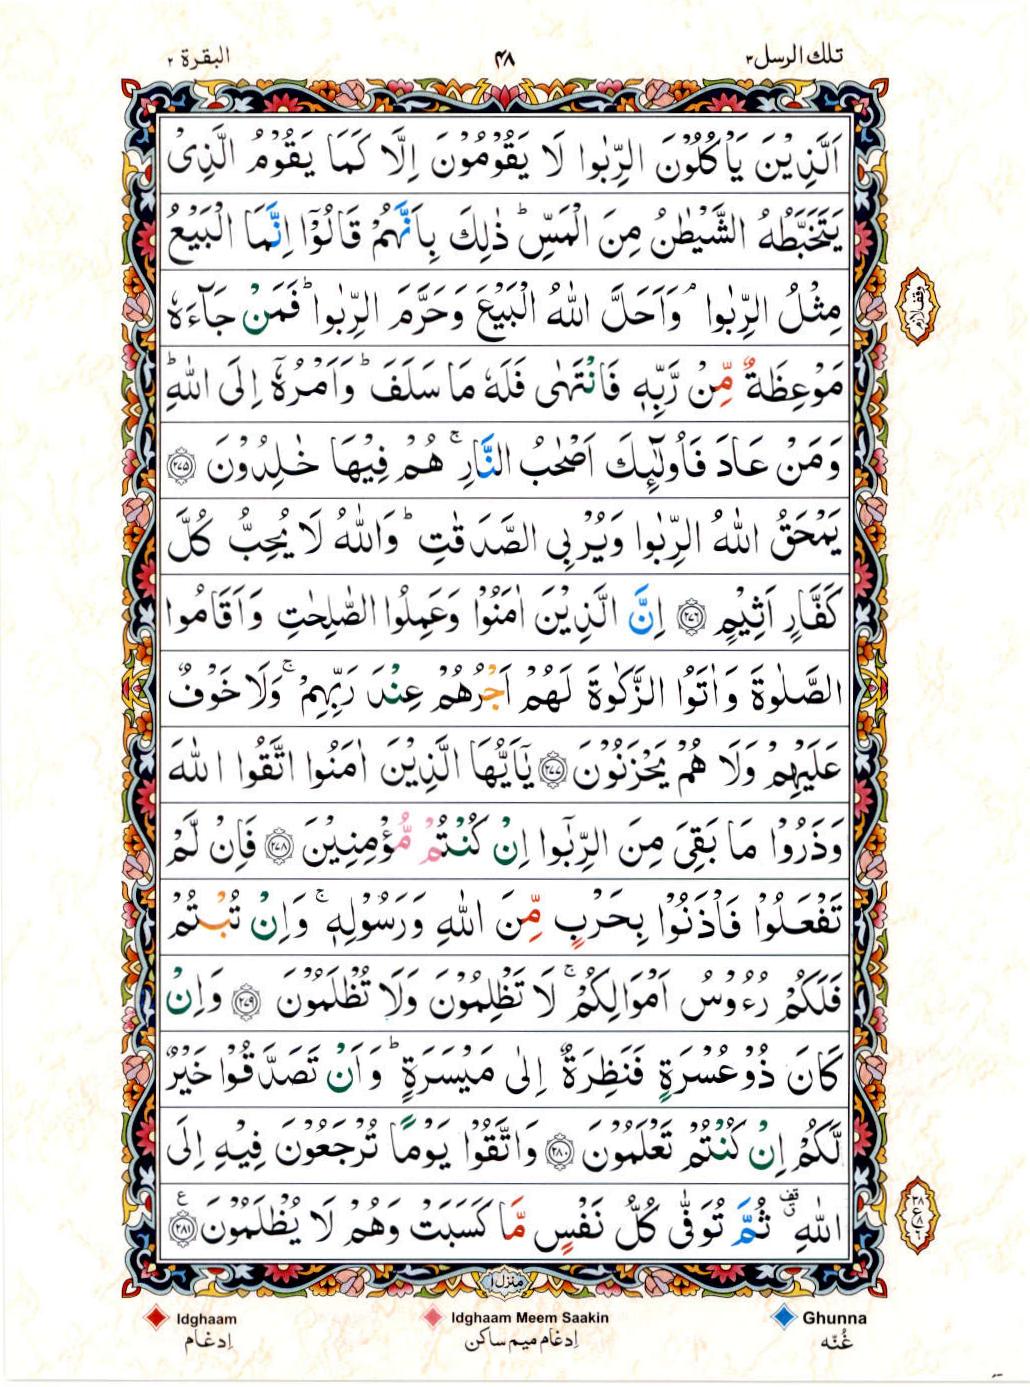 تلك الرسل ٣
٤٨
البقرة ٢
اَلَّذِيْنَ يَاْكُلُوْنَ الرِّبٰوا لَا يَقُوْمُوْنَ اِلَّا كَمَا يَقُوْمُ الَّذِيْ
يَتَخَبَّطُهُ الشَّيْطٰنُ مِنَ الْمَسِّ ؕ ذٰلِكَ بِاَنَّهُمْ قَالُوْۤا اِنَّمَا الْبَيْعُ
مِثْلُ الرِّبٰوا ۘ وَاَحَلَّ اللّٰهُ الْبَيْعَ وَحَرَّمَ الرِّبٰوا ؕ فَمَنْ جَآءَهٗ
وقف لازم
مَوْعِظَةٌ مِّنْ رَّبِّهٖ فَانْتَهٰى فَلَهٗ مَا سَلَفَ ؕ وَاَمْرُهٗۤ اِلَى اللّٰهِ ؕ
وَمَنْ عَادَ فَاُولٰٓئِكَ اَصْحٰبُ النَّارِ ۚ هُمْ فِيْهَا خٰلِدُوْنَ ﴿٢٧٥﴾
يَمْحَقُ اللّٰهُ الرِّبٰوا وَيُرْبِى الصَّدَقٰتِ ؕ وَاللّٰهُ لَا يُحِبُّ كُلَّ
كَفَّارٍ اَثِيْمٍ ﴿٢٧٦﴾ اِنَّ الَّذِيْنَ اٰمَنُوْا وَعَمِلُوا الصّٰلِحٰتِ وَاَقَامُوا
الصَّلٰوةَ وَاٰتَوُا الزَّكٰوةَ لَهُمْ اَجْرُهُمْ عِنْدَ رَبِّهِمْ ۚ وَلَا خَوْفٌ
عَلَيْهِمْ وَلَا هُمْ يَحْزَنُوْنَ ﴿٢٧٧﴾ يٰۤاَيُّهَا الَّذِيْنَ اٰمَنُوا اتَّقُوا اللّٰهَ
وَذَرُوْا مَا بَقِيَ مِنَ الرِّبٰۤوا اِنْ كُنْتُمْ مُّؤْمِنِيْنَ ﴿٢٧٨﴾ فَاِنْ لَّمْ
تَفْعَلُوْا فَاْذَنُوْا بِحَرْبٍ مِّنَ اللّٰهِ وَرَسُوْلِهٖ ۚ وَاِنْ تُبْتُمْ
فَلَكُمْ رُءُوْسُ اَمْوَالِكُمْ ۚ لَا تَظْلِمُوْنَ وَلَا تُظْلَمُوْنَ ﴿٢٧٩﴾ وَاِنْ
كَانَ ذُوْ عُسْرَةٍ فَنَظِرَةٌ اِلٰى مَيْسَرَةٍ ؕ وَاَنْ تَصَدَّقُوْا خَيْرٌ
لَّكُمْ اِنْ كُنْتُمْ تَعْلَمُوْنَ ﴿٢٨٠﴾ وَاتَّقُوْا يَوْمًا تُرْجَعُوْنَ فِيْهِ اِلَى
اللّٰهِ ۗ ثُمَّ تُوَفّٰى كُلُّ نَفْسٍ مَّا كَسَبَتْ وَهُمْ لَا يُظْلَمُوْنَ ﴿٢٨١﴾ ع
منزل ١
Idghaam
Idghaam Meem Saakin
Ghunna
اِدغام
اِدغام میم ساکن
غُنّه